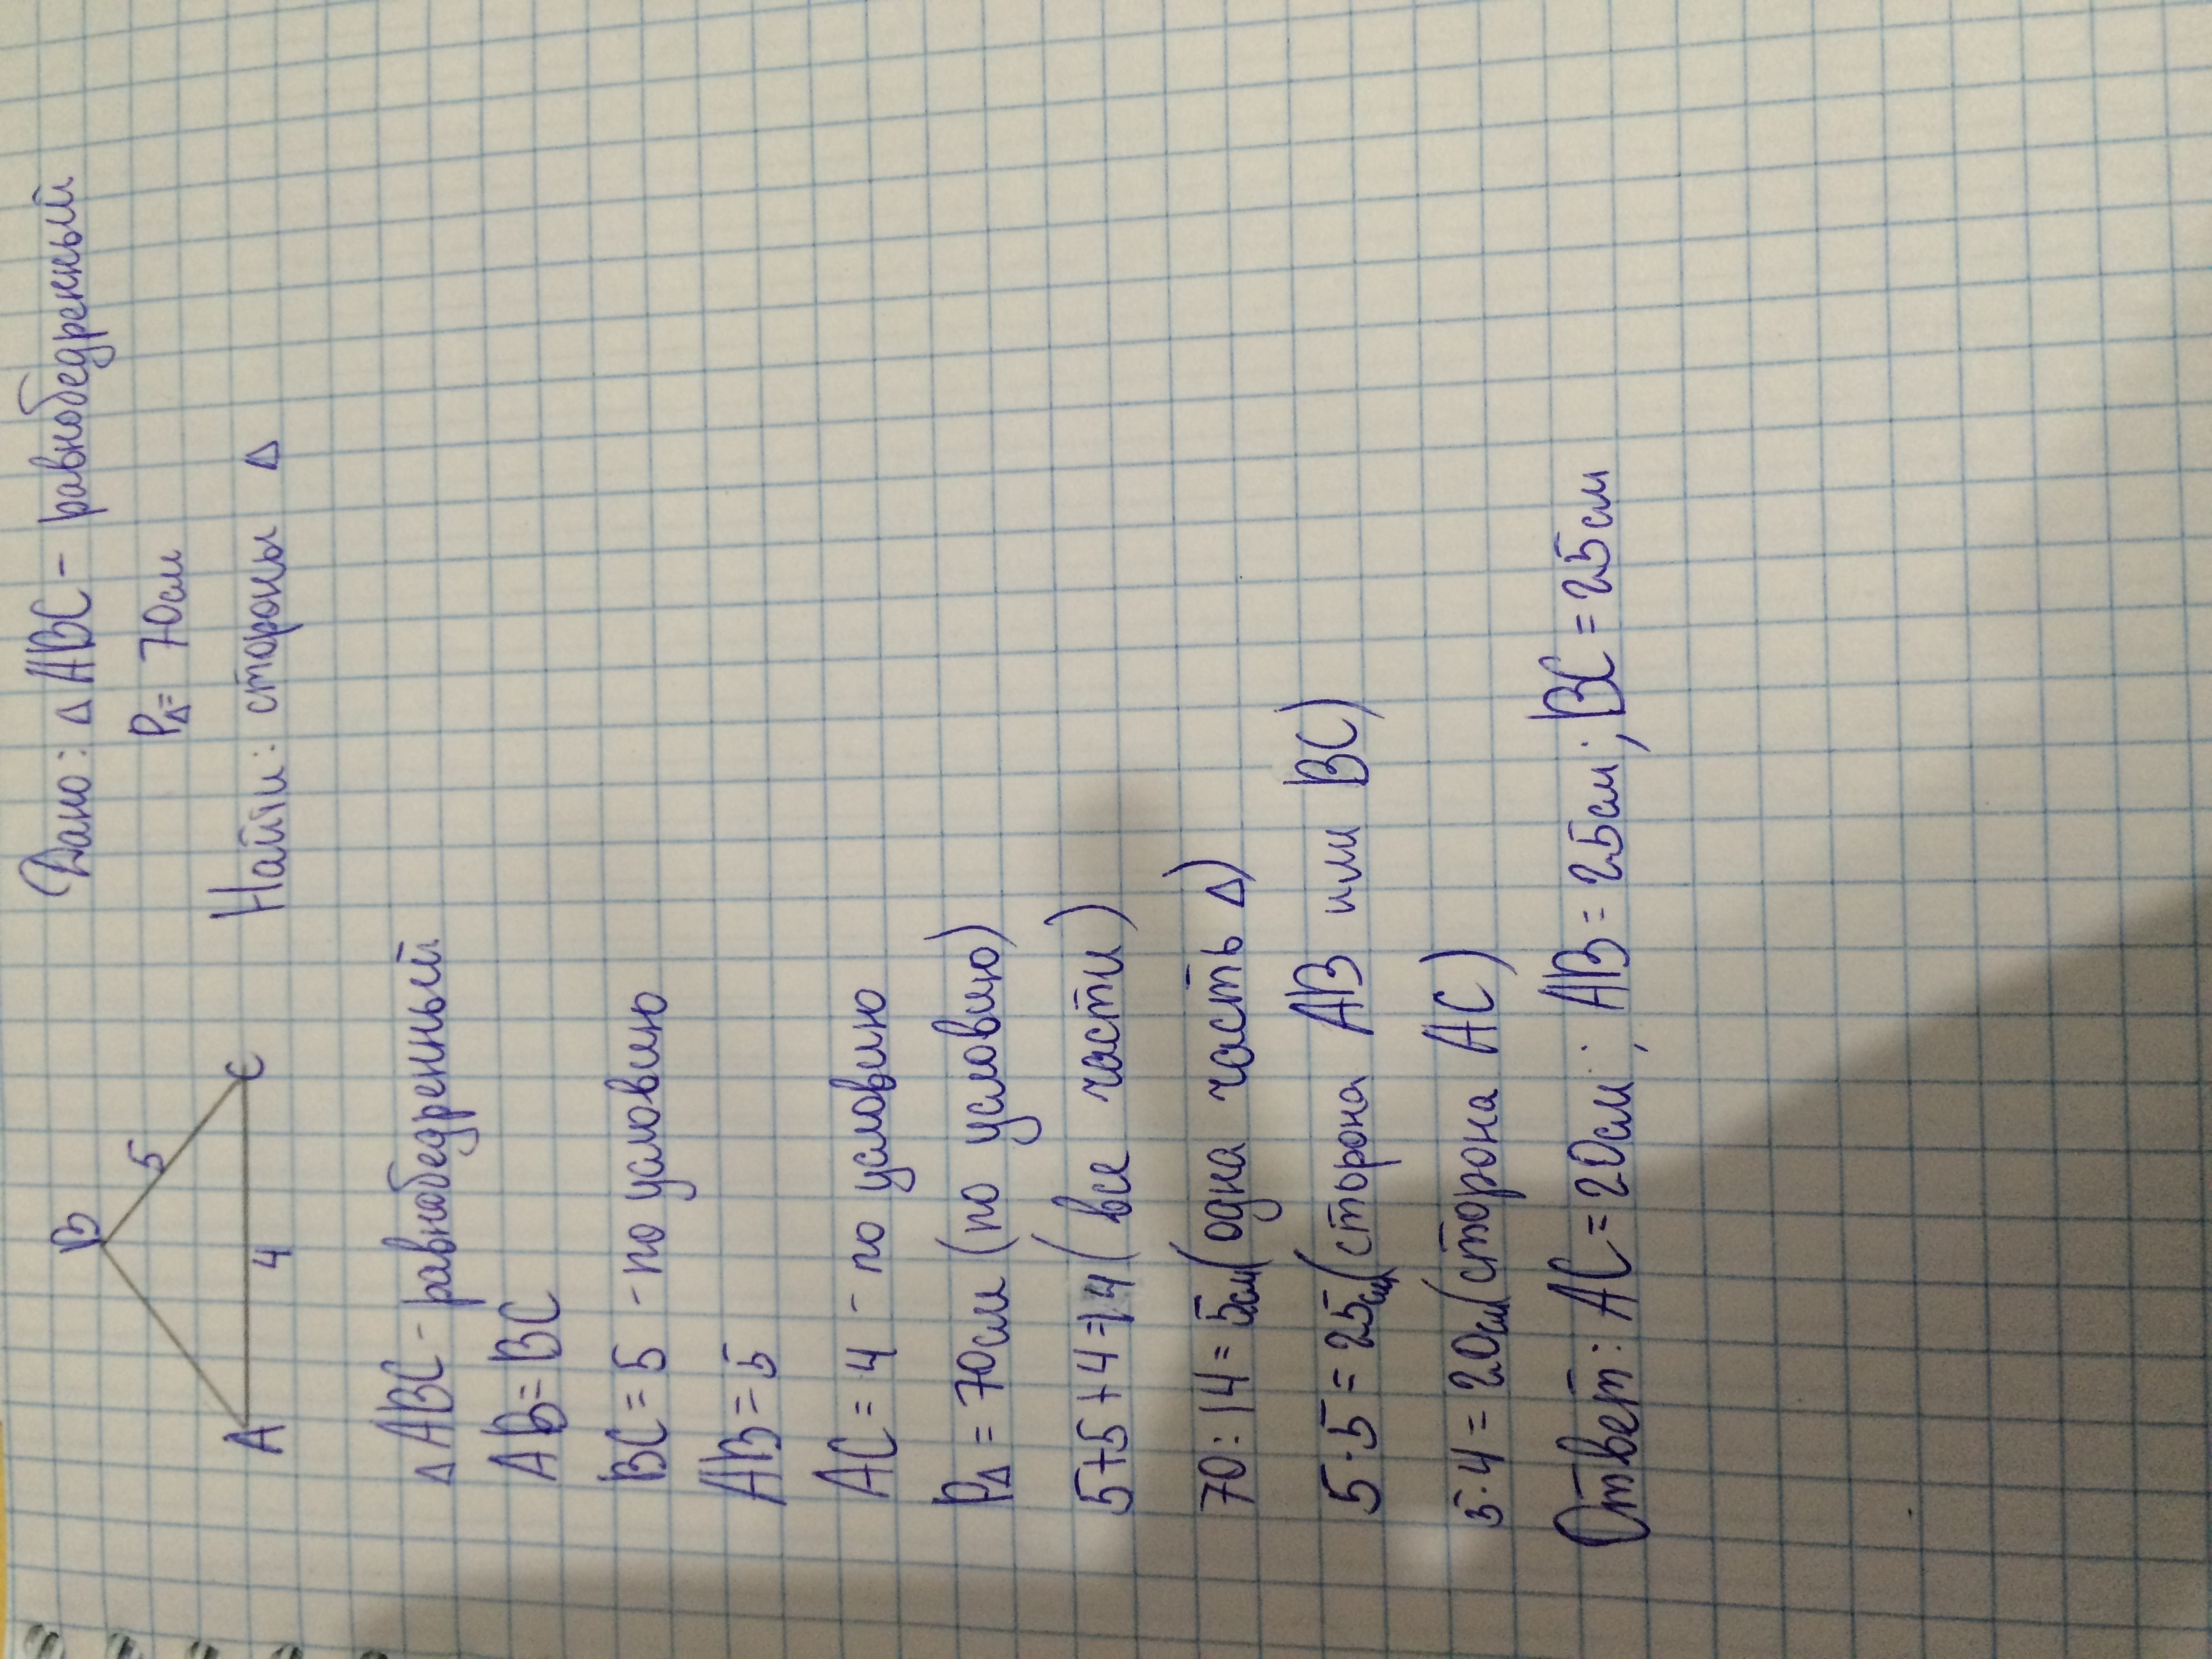 Дано: Δ ABC - равнобедренный
PΔ= 70см
Найти: стороны Δ
B
5
A
4
C
Δ ABC - равнобедренный
AB = BC
BC = 5 - по условию
AB = 5
AC = 4 - по условию
PΔ = 70см (по условию)
5+5+4=14 (все части)
70:14=5см (одна часть Δ)
5·5=25см (сторона AB или BC)
5·4=20см (сторона AC)
Ответ: AC=20см; AB=25см; BC=25см